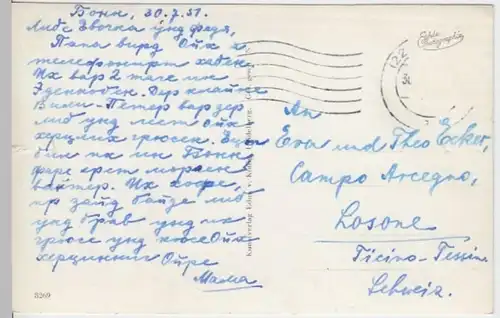 Бонн, 30.7.51.
Либе Евочка унд Федя,
Папа вирд Ойх х
телефонирт хабен.
Их вар 2 таге ин
Эденкобен. Дер клайне
Вили-Петер вар зер
либ унд лест Ойх
херцлих грюсен.
бин их ин Бонн,
фаре ерст морген
вайтер. Их хофе,
ир зайд байде либ
унд брав унд их
грюсе унд кюсе Ойх
херцинниг Ойре
Мама
3269
Echte Photographie
An
Eva und Theo Ecker,
Campo Arcegno,
Losone
Ticino-Tessin
Schweiz.